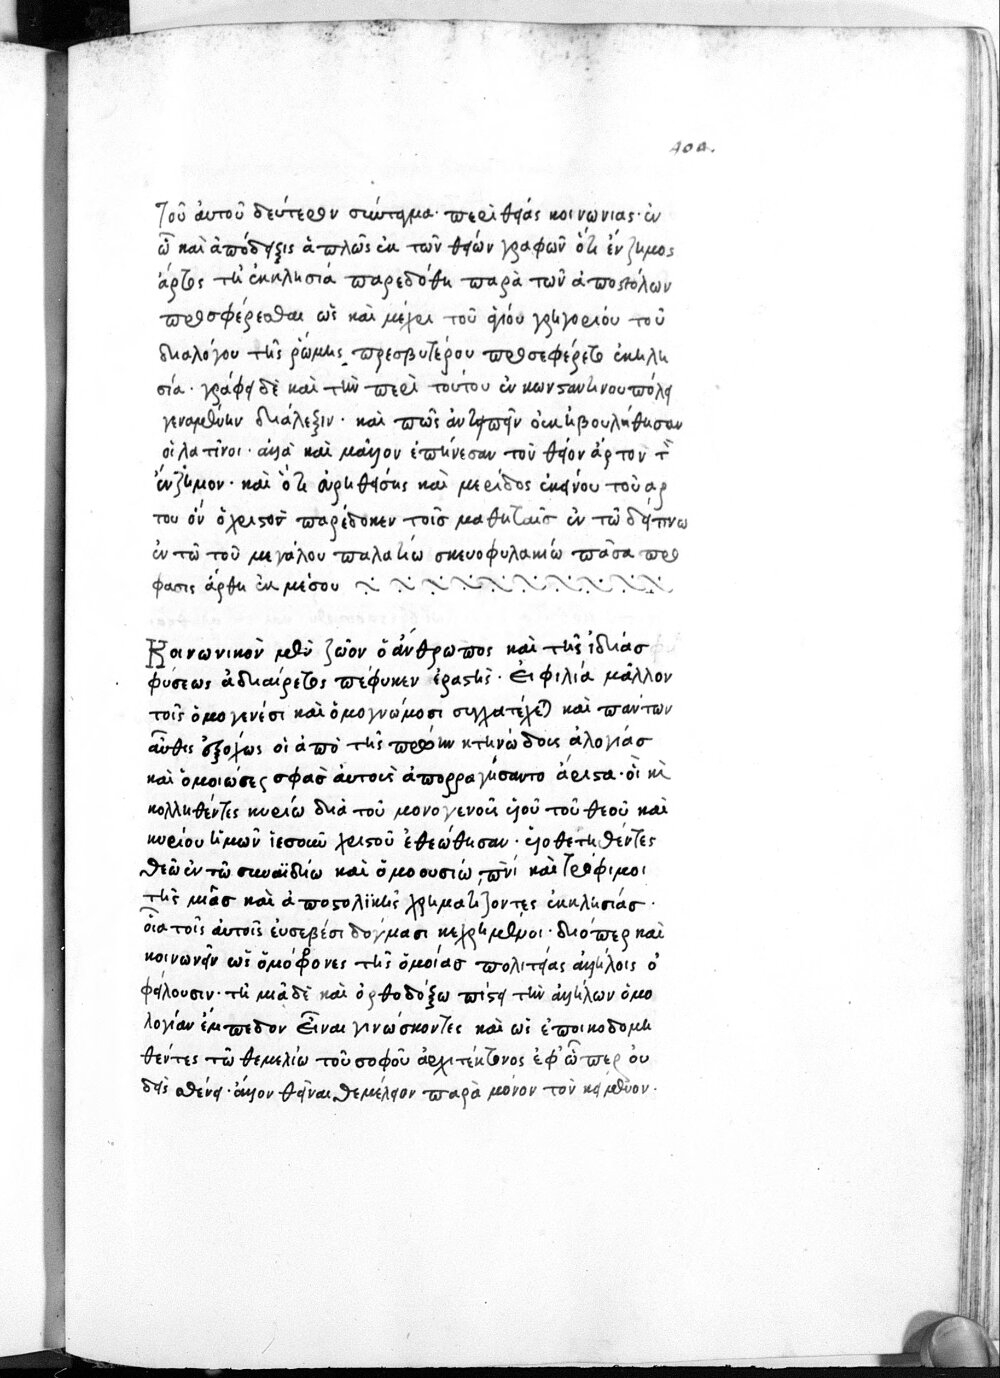 102.
Τοῦ ἀυτοῦ δεύτερον σύνταγμα· περὶ θείας κοινωνίας· ἐν
ὧ καὶ ἀπόδειξις ἁπλῶς ἐκ τῶν θείων γραφῶν ὅτι ἔνζυμος
ἄρτος τῆ ἐκκλησία παρεδόθη παρὰ τῶν ἀποστόλων
προσφέρεσθαι ὡς καὶ μέχρι τοῦ ἁγίου γρηγορίου τοῦ
διαλόγου τῆς ῥώμης πρεσβυτέρου προσεφέρετο ἐκκλη
σία· γράφει δὲ καὶ τὴν περὶ τούτου ἐν κωνσαντινουπόλει
γεναμένην διάλεξιν· καὶ πῶς ἀντειπεῖν οὐκ ἠβουλήθησαν
οἱ λατῖνοι· ἀλλὰ καὶ μᾶλλον ἐπήνεσαν τὸν θεῖον ἄρτον τὸν
ἔνζυμον· καὶ ὅτι εὑρηθείσης καὶ μερίδος ἐκείνου τοῦ αρ
του ὃν ὁ χριστὸς παρέδοκεν τοῖς μαθηταῖς ἐν τῶ δείπνω
ἐν τῶ τοῦ μεγάλου παλατίω σκευοφυλακίω πᾶσα πρό
φασις ἄρθη ἐκ μέσου
Κοινωνικὸν μὲν ζῶον ὁ ἄνθρωπος καὶ τῆς ἰδίας
φύσεως ἀδιαίρετος πέφυκεν ἐραστὴς· Εἰ φιλία μᾶλλον
τοῖς ὁμογενέσι καὶ ὁμογνώμοσι συγκατέχεται καὶ πάντων
αὖθις ἐξόχως οἱ ἀπὸ τῆς πρώην κτηνώδους ἀλογίας
καὶ ὁμοιώσεως σφᾶς ἀυτοὺς ἀπορραγήσαντο ἄριστα· οἳ καὶ
κολληθέντες κυρίω διὰ τοῦ μονογενοῦς υἱοῦ τοῦ θεοῦ καὶ
κυρίου ἡμῶν ἰεσοῦ χριστοῦ ἐθεώθησαν· υἱοθετηθέντες
θεῶ ἐν τῶ συναϊδίω καὶ ὁμοουσίω πνὶ καὶ τρόφιμοι
τῆς μιᾶς καὶ ἀποστολϊκῆς χρηματίζοντες ἐκκλησίας·
οἷα τοῖς ἀυτοῖς ἐυσεβέσι δόγμασι κεχρημένοι· διόπερ καὶ
κοινωνεῖν ὡς ὁμόφρονες τῆς ὁμοίας πολιτείας ἀλλήλοις ὀ
φείλουσιν· τῆ μιᾶ δὲ καὶ ὀρθοδόξω πίστει τὴν ἀλλήλων ὁμο
λογίαν ἔμπεδον Εἶναι γινώσκοντες καὶ ὡς ἐποικοδομη
θέντες τῶ θεμελίω τοῦ σοφοῦ ἀρχιτέκτονος ἐφ᾽ ὧπερ ὀυ
δεὶς σθένει· ἄλλον θεῖναι θεμέλιον παρὰ μόνον τὸν κείμενον·